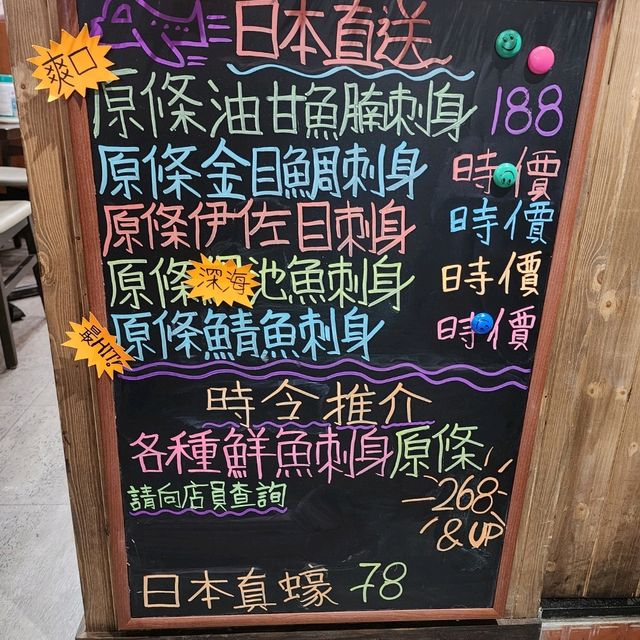 日本直送
爽口
原條油甘魚腩刺身 188
原條金目鯛刺身 時價
原條伊佐目刺身 時價
深海
原條池魚刺身 時價
最HIT!
原條鯖魚刺身 時價
時令推介
各種鮮魚刺身原條
268
& UP
請向店員查詢
日本真蠔 78